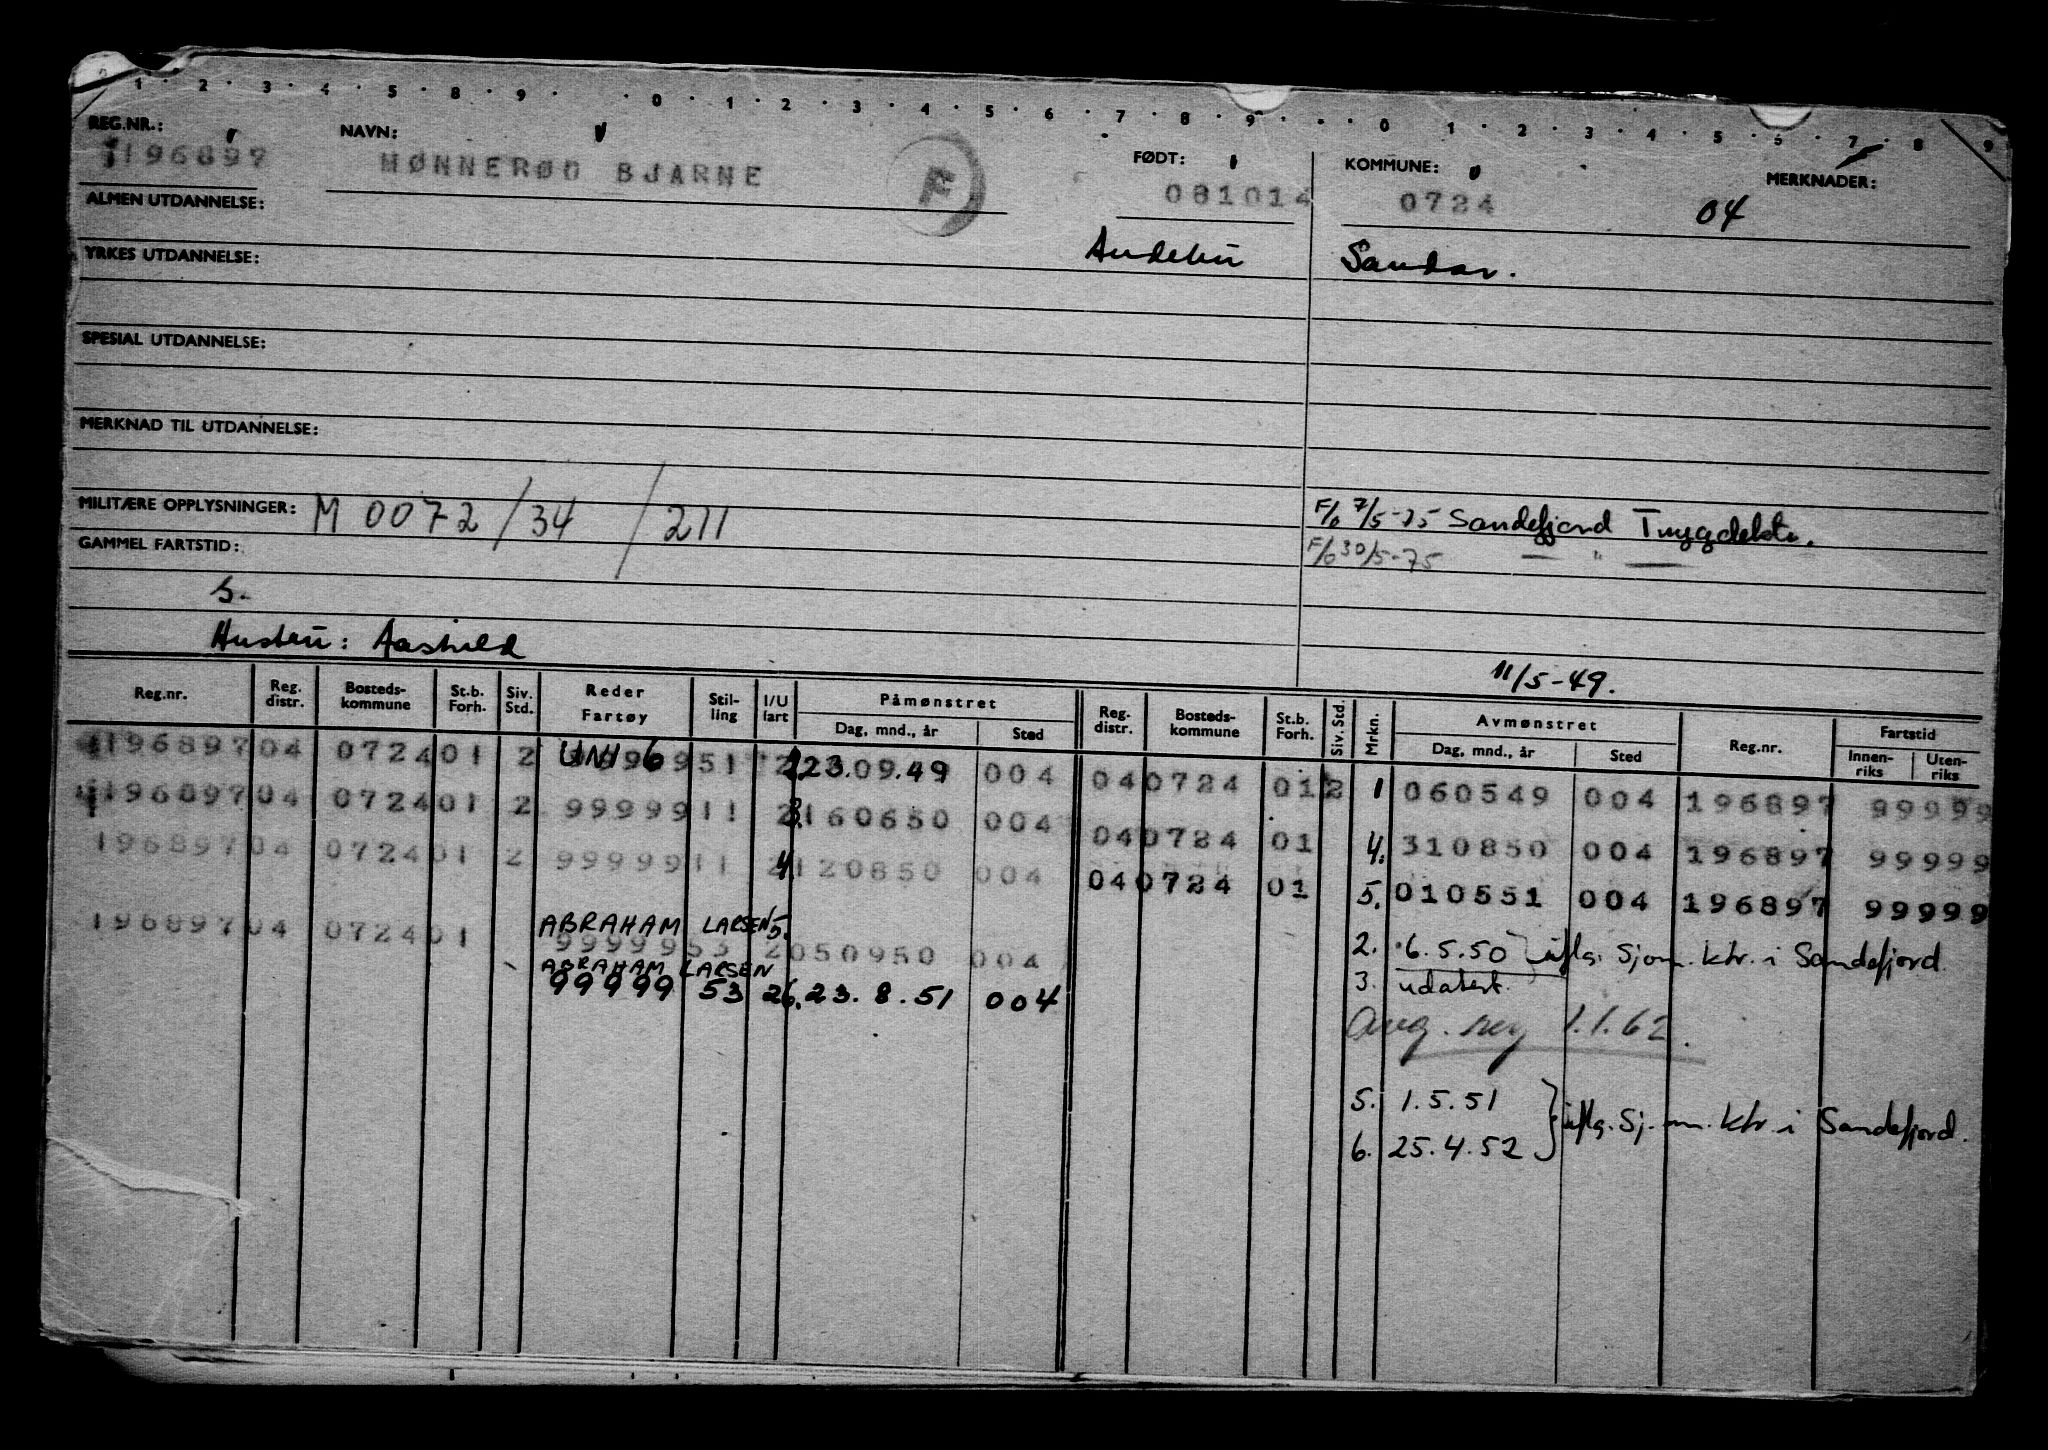 1 2 3 4 5 8 9 0 1 2 3 4 5 6 7 8 9 0 1 2 3 4 5 6 7 8 9
REG.NR.: NAVN: FØDT: KOMMUNE: MERKNADER:
196897 MØNNERØD BJARNE F 081014 0724 04
ALMEN UTDANNELSE:
Andebu Sandar.
YRKES UTDANNELSE:
SPESIAL UTDANNELSE:
MERKNAD TIL UTDANNELSE:
MILITÆRE OPPLYSNINGER: M 0072/34/211
F/6 7/5-75 Sandefjord Trygdektr.
GAMMEL FARTSTID:
F/6 30/5-75 — " —
S.
Hustru: Aashild
11/5-49.
Reg.nr. Reg. distr. Bosteds-kommune St.b. Forh. Siv. Std. Reder Fartøy Stil-ling I/U fart Påmønstret Dag, mnd., år Sted Reg. distr. Bosteds-kommune St.b. Forh. Siv. Std. Mrkn. Avmønstret Dag, mnd., år Sted Reg.nr. Fartstid Innen-riks Uten-riks
196897 04 0724 01 2 UNI 6 99999 51 2 23.09.49 004 04 0724 01 2 1 060549 004 196897 99999
196897 04 0724 01 2 99999 11 2 3. 160650 004 04 0724 01 4. 310850 004 196897 99999
196897 04 0724 01 2 99999 11 2 4 120850 004 04 0724 01 5. 010551 004 196897 99999
ABRAHAM LARSEN 5.
196897 04 0724 01 99999 53 2 050950 004 2. 6.5.50 iflg. Sjøm. ktr. i Sandefjord.
ABRAHAM LARSEN
99999 53 2 6. 23.8.51 004 3. udatert.
Avg. reg 1.1.62.
5. 1.5.51
iflg. Sj.m. ktr. i Sandefjord.
6. 25.4.52